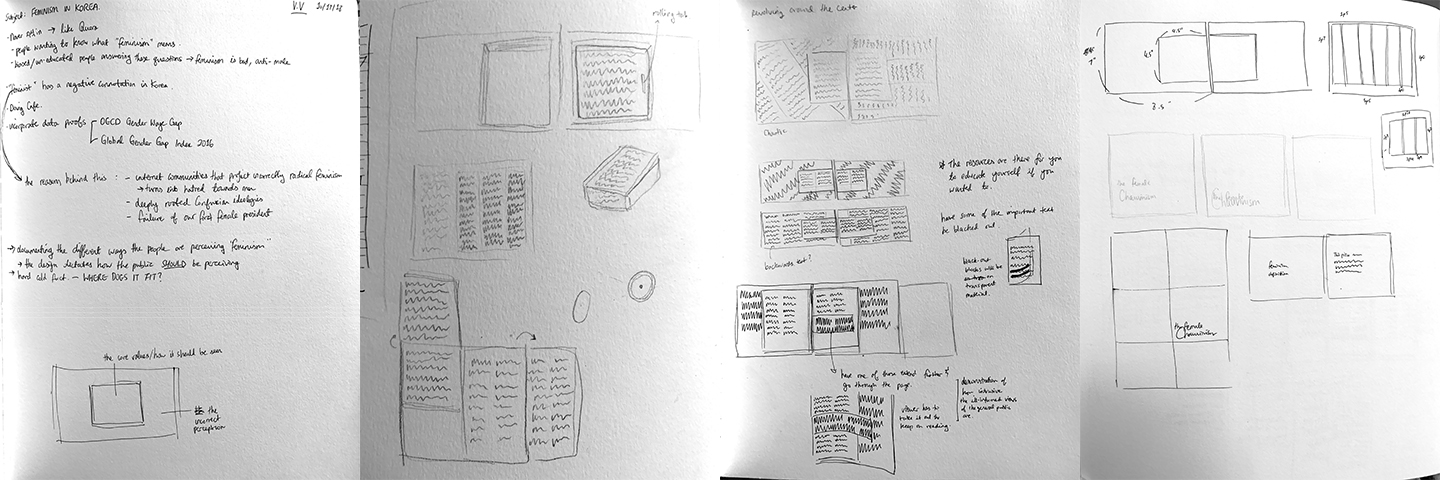 Subject: FEMINISM IN KOREA.
V.V 20/11/18
→ like Quora
- people wanting to know what "feminism" means.
- biased/un-educated people answering these questions → feminism is bad, anti-male
"feminist" has a negative connotation in Korea.
- Daum Cafe.
- incorporate data proofs
OECD Gender Wage Gap
Global Gender Gap Index 2016
the reason behind this : - internet communities that project incorrectly radical feminism
→ turns into hatred towards men
- deeply rooted Confucian ideologies
- failure of our first female president
→ documenting the different ways the people are perceiving "feminism"
→ the design dictates how the public SHOULD be perceiving
→ hard cold fact — WHERE DOES IT FIT?
the core values/how it should be seen
the
incorrect
perception
pulling tab
Revolving around the center
Chaotic
backwards text?
* The resources are there for you
to educate yourself if you
wanted to.
have some of the important text
be blacked out.
black-out
blocks will be
on
transparent
material.
have one of these extend further &
go through the page.
viewer has to
take it out to
keep on reading.
demonstration of
how intrusive
the ill-informed views
of the general public
are.
7"
4.5"
4.5"
8.5"
the female
Chauvinism
feminism
definition
the female
Chauvinism